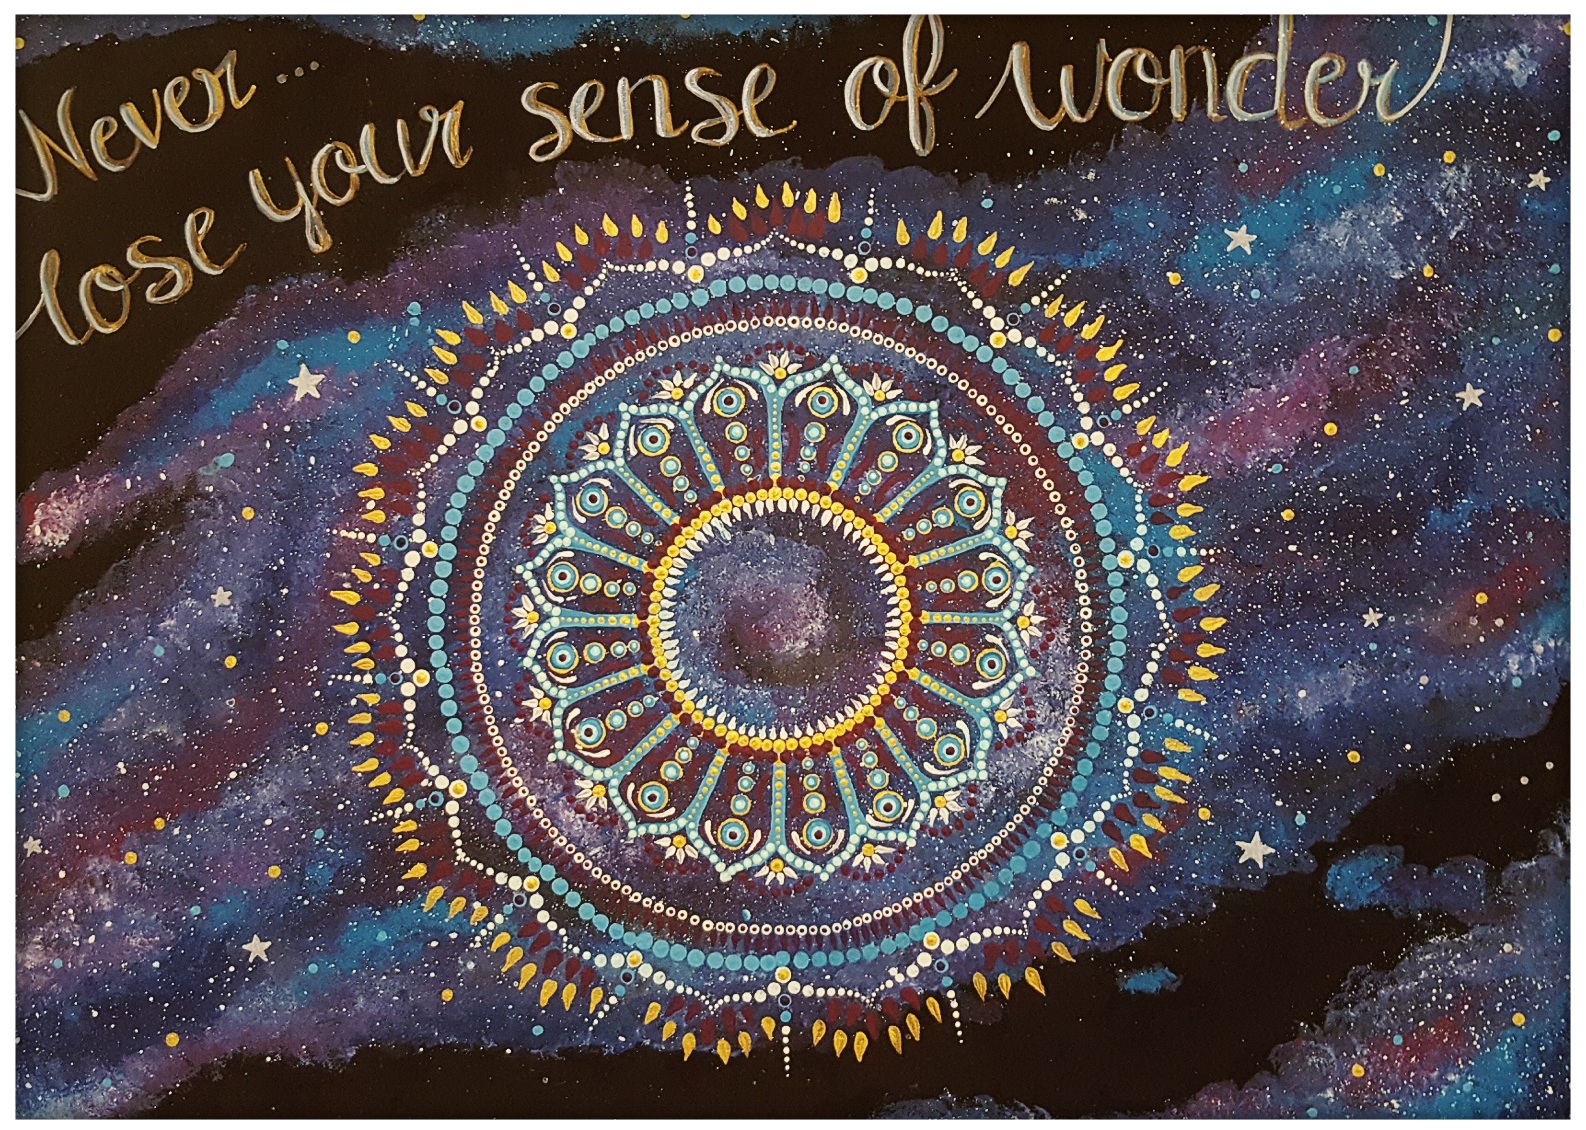 Never...
lose your sense of wonder